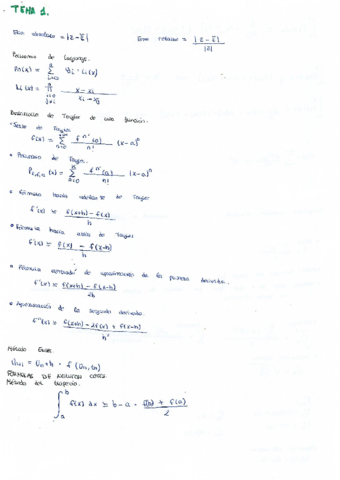 TEMA 1.
Error absoluto = |z - z̄|    Error relativo = |z - z̄| / |z|
Polinomio de Lagrange.
Pn(x) = Σ yi · Li(x)
Li(x) = Π (x - xj) / (xi - xj)
Desarrollo de Taylor de una función.
• Serie de Taylor
f(x) = Σ fⁿ(a) / n! (x-a)ⁿ
• Polinomio de Taylor.
(x) = Σ fⁿ(a) / n! (x-a)ⁿ
• Fórmula hacia adelante de Taylor
f'(x) ≈ f(x+h) - f(x) / h
• Fórmula hacia atrás de Taylor
f'(x) ≈ f(x) - f(x-h) / h
• Fórmula centrada de aproximación de la primera derivada.
f'(x) ≈ f(x+h) - f(x-h) / 2h
• Aproximación de la segunda derivada.
f''(x) ≈ f(x+h) - 2f(x) + f(x-h) / h²
Método Euler.
FORMULAS DE NEWTON COTES.
Método del trapecio.
∫ₐᵇ f(x) dx ≈ b - a · f(b) + f(a) / 2